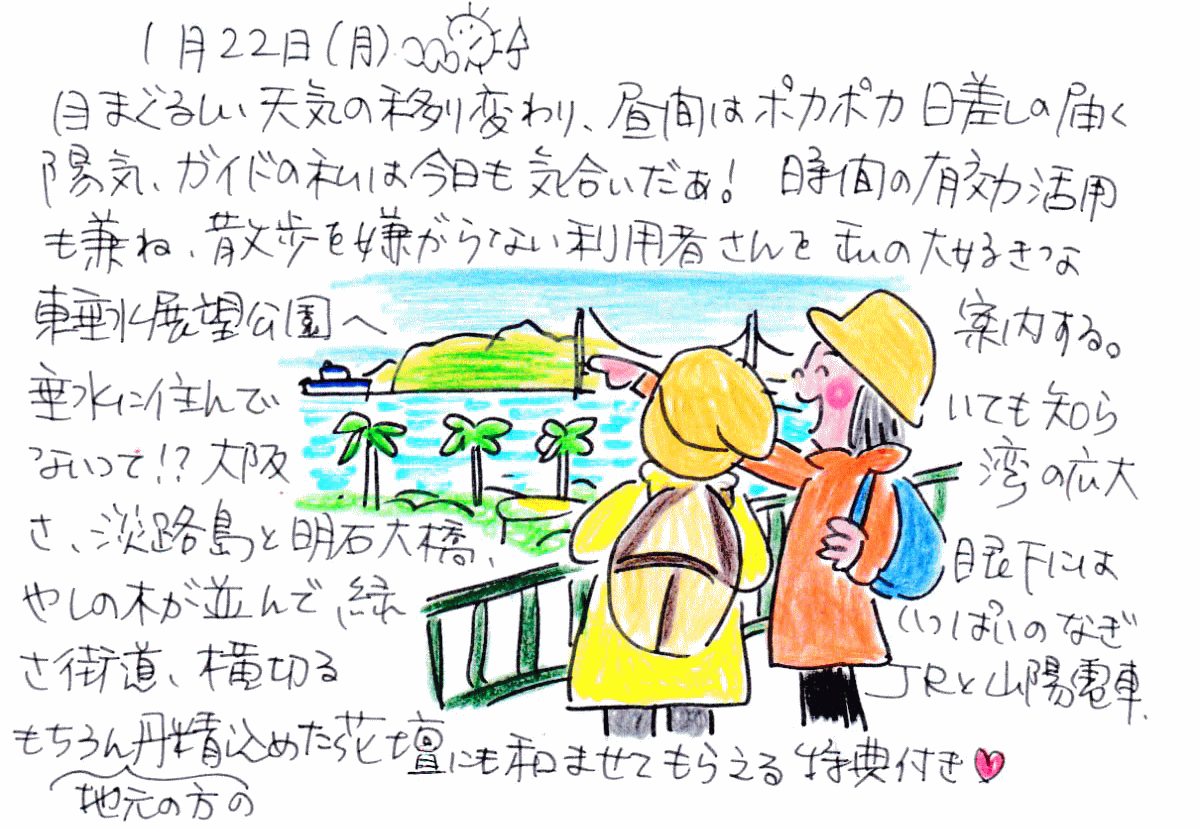 1月22日(月)
目まぐるしい天気の移り変わり、昼間はポカポカ日差しの届く
陽気、ガイドの私は今日も気合いだぁ! 時間の有効活用
も兼ね、散歩を嫌がらない利用者さんを私の大好きな
東垂水展望公園へ 案内する。
垂水に住んで いても知ら
ないって!? 大阪 湾の広大
さ、淡路島と明石大橋、 眼下には
やしの木が並んで緑 いっぱいのなぎ
さ街道、横切る JRと山陽電車、
もちろん丹精込めた花壇にも和ませてもらえる特典付き♥
地元の方の